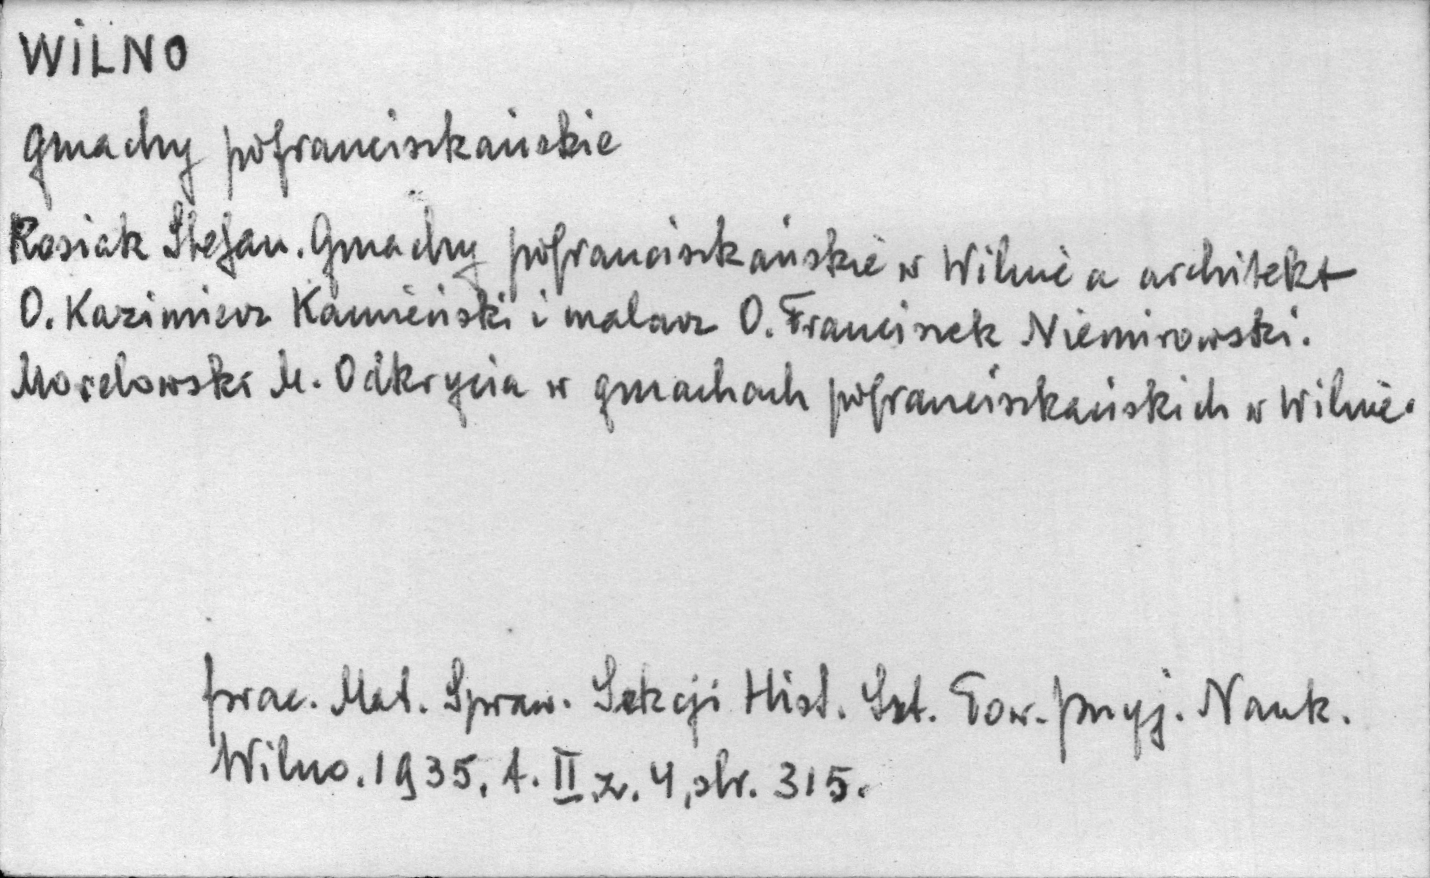 WILNO
Gmachy pofranciszkańskie
Rosiak Stefan. Gmachy pofranciszkańskie w Wilnie a architekt
O. Kazimierz Kamieński i malarz O. Franciszek Niemirowski.
Morelowski M. Odkrycia w gmachach pofranciszkańskich w Wilnie.
prac. Mat. Spraw. Sekcji Hist. Szt. Tow. przyj. Nauk.
Wilno. 1935, t. II z. 4, str. 315.